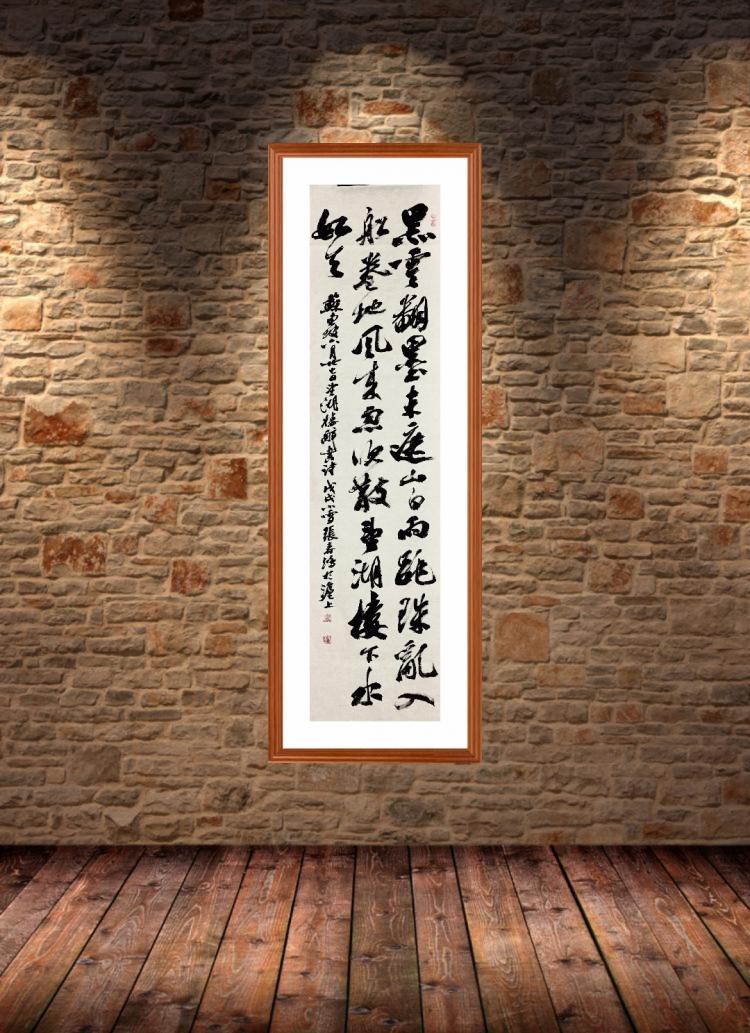 黑雲翻墨未遮山白雨跳珠亂入
船卷地風来忽吹散望湖樓下水
如天
蘇東坡六月廿七日望湖樓醉書詩 戊戌小雪張春於滬上